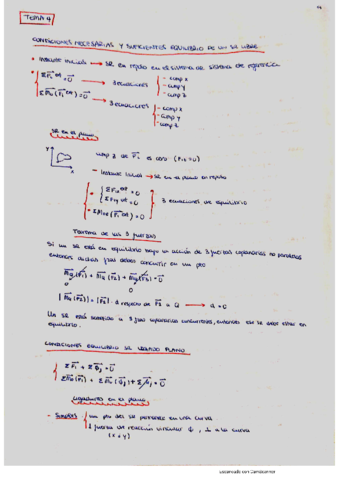 TEMA 4
CONDICIONES NECESARIAS Y SUFICIENTES EQUILIBRIO DE UN SR LIBRE
• Instante inicial → SR en reposo en el sistema de referencia
• ΣFi ext = 0 → 3 ecuaciones - comp x - comp y - comp z
• ΣMo (Fi ext) = 0 → 3 ecuaciones - comp x - comp y - comp z
SR en el plano
comp z de Fi es cero (Fiz=0)
- Instante inicial → SR en el plano en reposo
ΣFix ext = 0
ΣFiy ext = 0
• ΣMoz (Fi ext) = 0
3 ecuaciones de equilibrio
Teorema de las 3 fuerzas
Si un SR está en equilibrio bajo la acción de 3 fuerzas coplanarias no paralelas
entonces dichas fzas deben concurrir en un pto
MQ(F1) + MQ(F2) + MQ(F3) = 0
0 0
|MQ(F3)| = |F3| · d respecto de F3 a Q → d = 0
Un SR está sometido a 3 fzas coplanarias concurrentes, entonces SR debe estar en
equilibrio.
CONDICIONES EQUILIBRIO SR LIGADO PLANO
ΣFi + Σϕj = 0
Ligaduras en el plano
- Simples
un pto del SR permanece en una curva
1 fuerza de reacción vincular ϕ, ⊥ a la curva
(x + y)
Escaneado con CamScanner